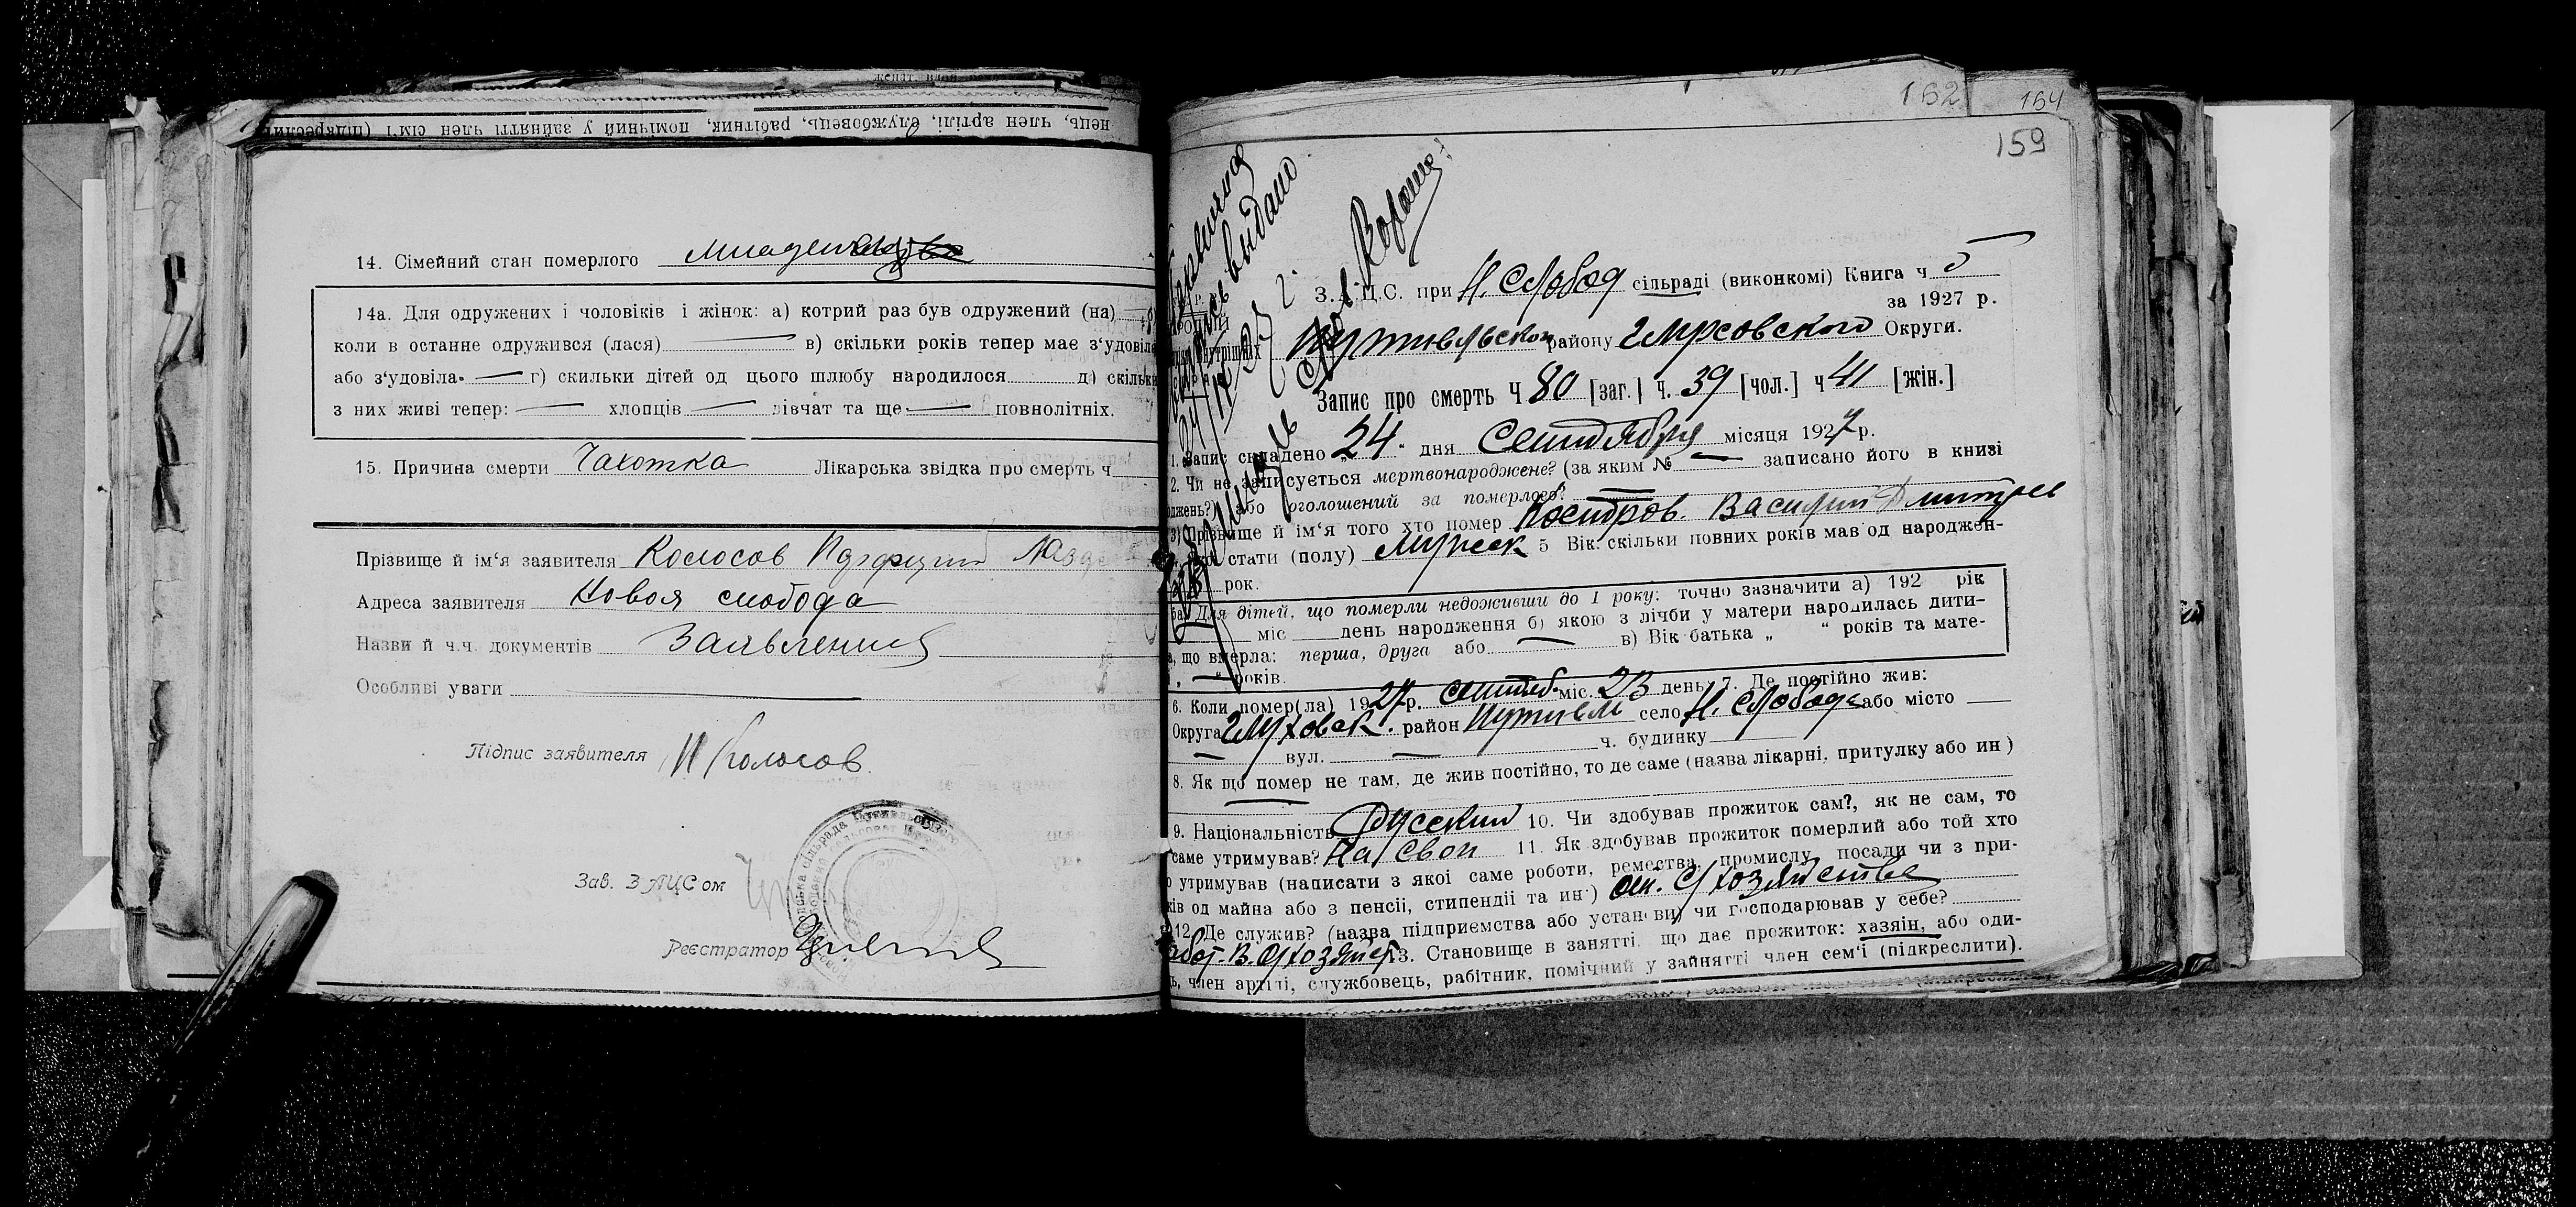 нець, член артілі, службовець, рабітник, помічний у зайнятті член сім'ї (підкреслит
14. Сімейний стан померлого
14а. Для одружених і чоловіків і жінок: а) котрий раз був одружений (на)
коли в останнє одружився (лася) — в) скільки років тепер має з'удовіле
або з'удовіла — г) скильки дітей од цього шлюбу народилося д) скільки
з них живі тепер: — хлопців — дівчат та ще — повнолітніх.
15. Причина смерти Чахотка Лікарська звідка про смерть ч
Прізвище й ім'я заявителя Колосов
Адреса заявителя Новоя слобода
Назви й ч.ч. документів Заявления
Особливі уваги
Підпис заявителя И Колосов.
Зав. ЗАЦСом
Реєстратор
162 164
159
выдано
З.А.Ц.С. при Н. Слобод сільраді (виконкомі) Книга ч 5
за 1927 р.
Путивльском району Глуховского Округи.
Запис про смерть Ч 80 [заг.] ч. 39 [чол.] ч 41 [жін.]
1. Запис складено „24" дня Сентября місяця 1927 р.
2. Чи не записується мертвонароджене? (за яким № — записано його в книзі
джень?) або оголошений за померлого? —
3) Прізвище й ім'я того хто помер Василий Дмитрев
стати (полу) мужеск 5 Вік. скільки повних років мав од народжен-
рок.
Для дітей, що померли недоживши до 1 року: точно зазначити а) 192 рік
міс день народження б) якою з лічби у матери народилась дити-
а, що вмерла: перша, друга або — в) Вік батька „ " років та мате-
„ — " років.
6. Коли помер(ла) 1927 р. сентяб. міс. 23 день. 7. Де постійно жив:
Округа Глуховск. район Путивль село Н. Слобода або місто —
— вул. — ч. будинку
8. Як що помер не там, де жив постійно, то де саме (назва лікарні, притулку або ин)
9. Національність Русский 10. Чи здобував прожиток сам?, як не сам, то
саме утримував? На свои 11. Як здобував прожиток померлий або той хто
о утримував (написати з якої саме роботи, ремества, промислу, посади чи з при-
ків од майна або з пенсії, стипендії та ин.) сел. С/хозяйстве
12. Де служив? (назва підприємства або установи) чи господарював у себе?
В. С/хозяйст 13. Становище в занятті, що дає прожиток: хазяїн, або оди-
ь, член артілі, службовець, рабітник, помічний у зайнятті член сем'ї (підкреслити).